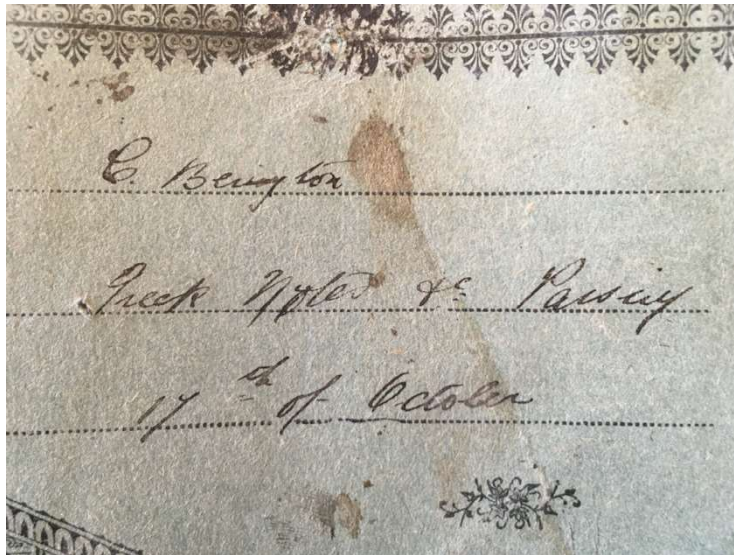 C. Bengton
Greek Notes &c Parsing
17th of October